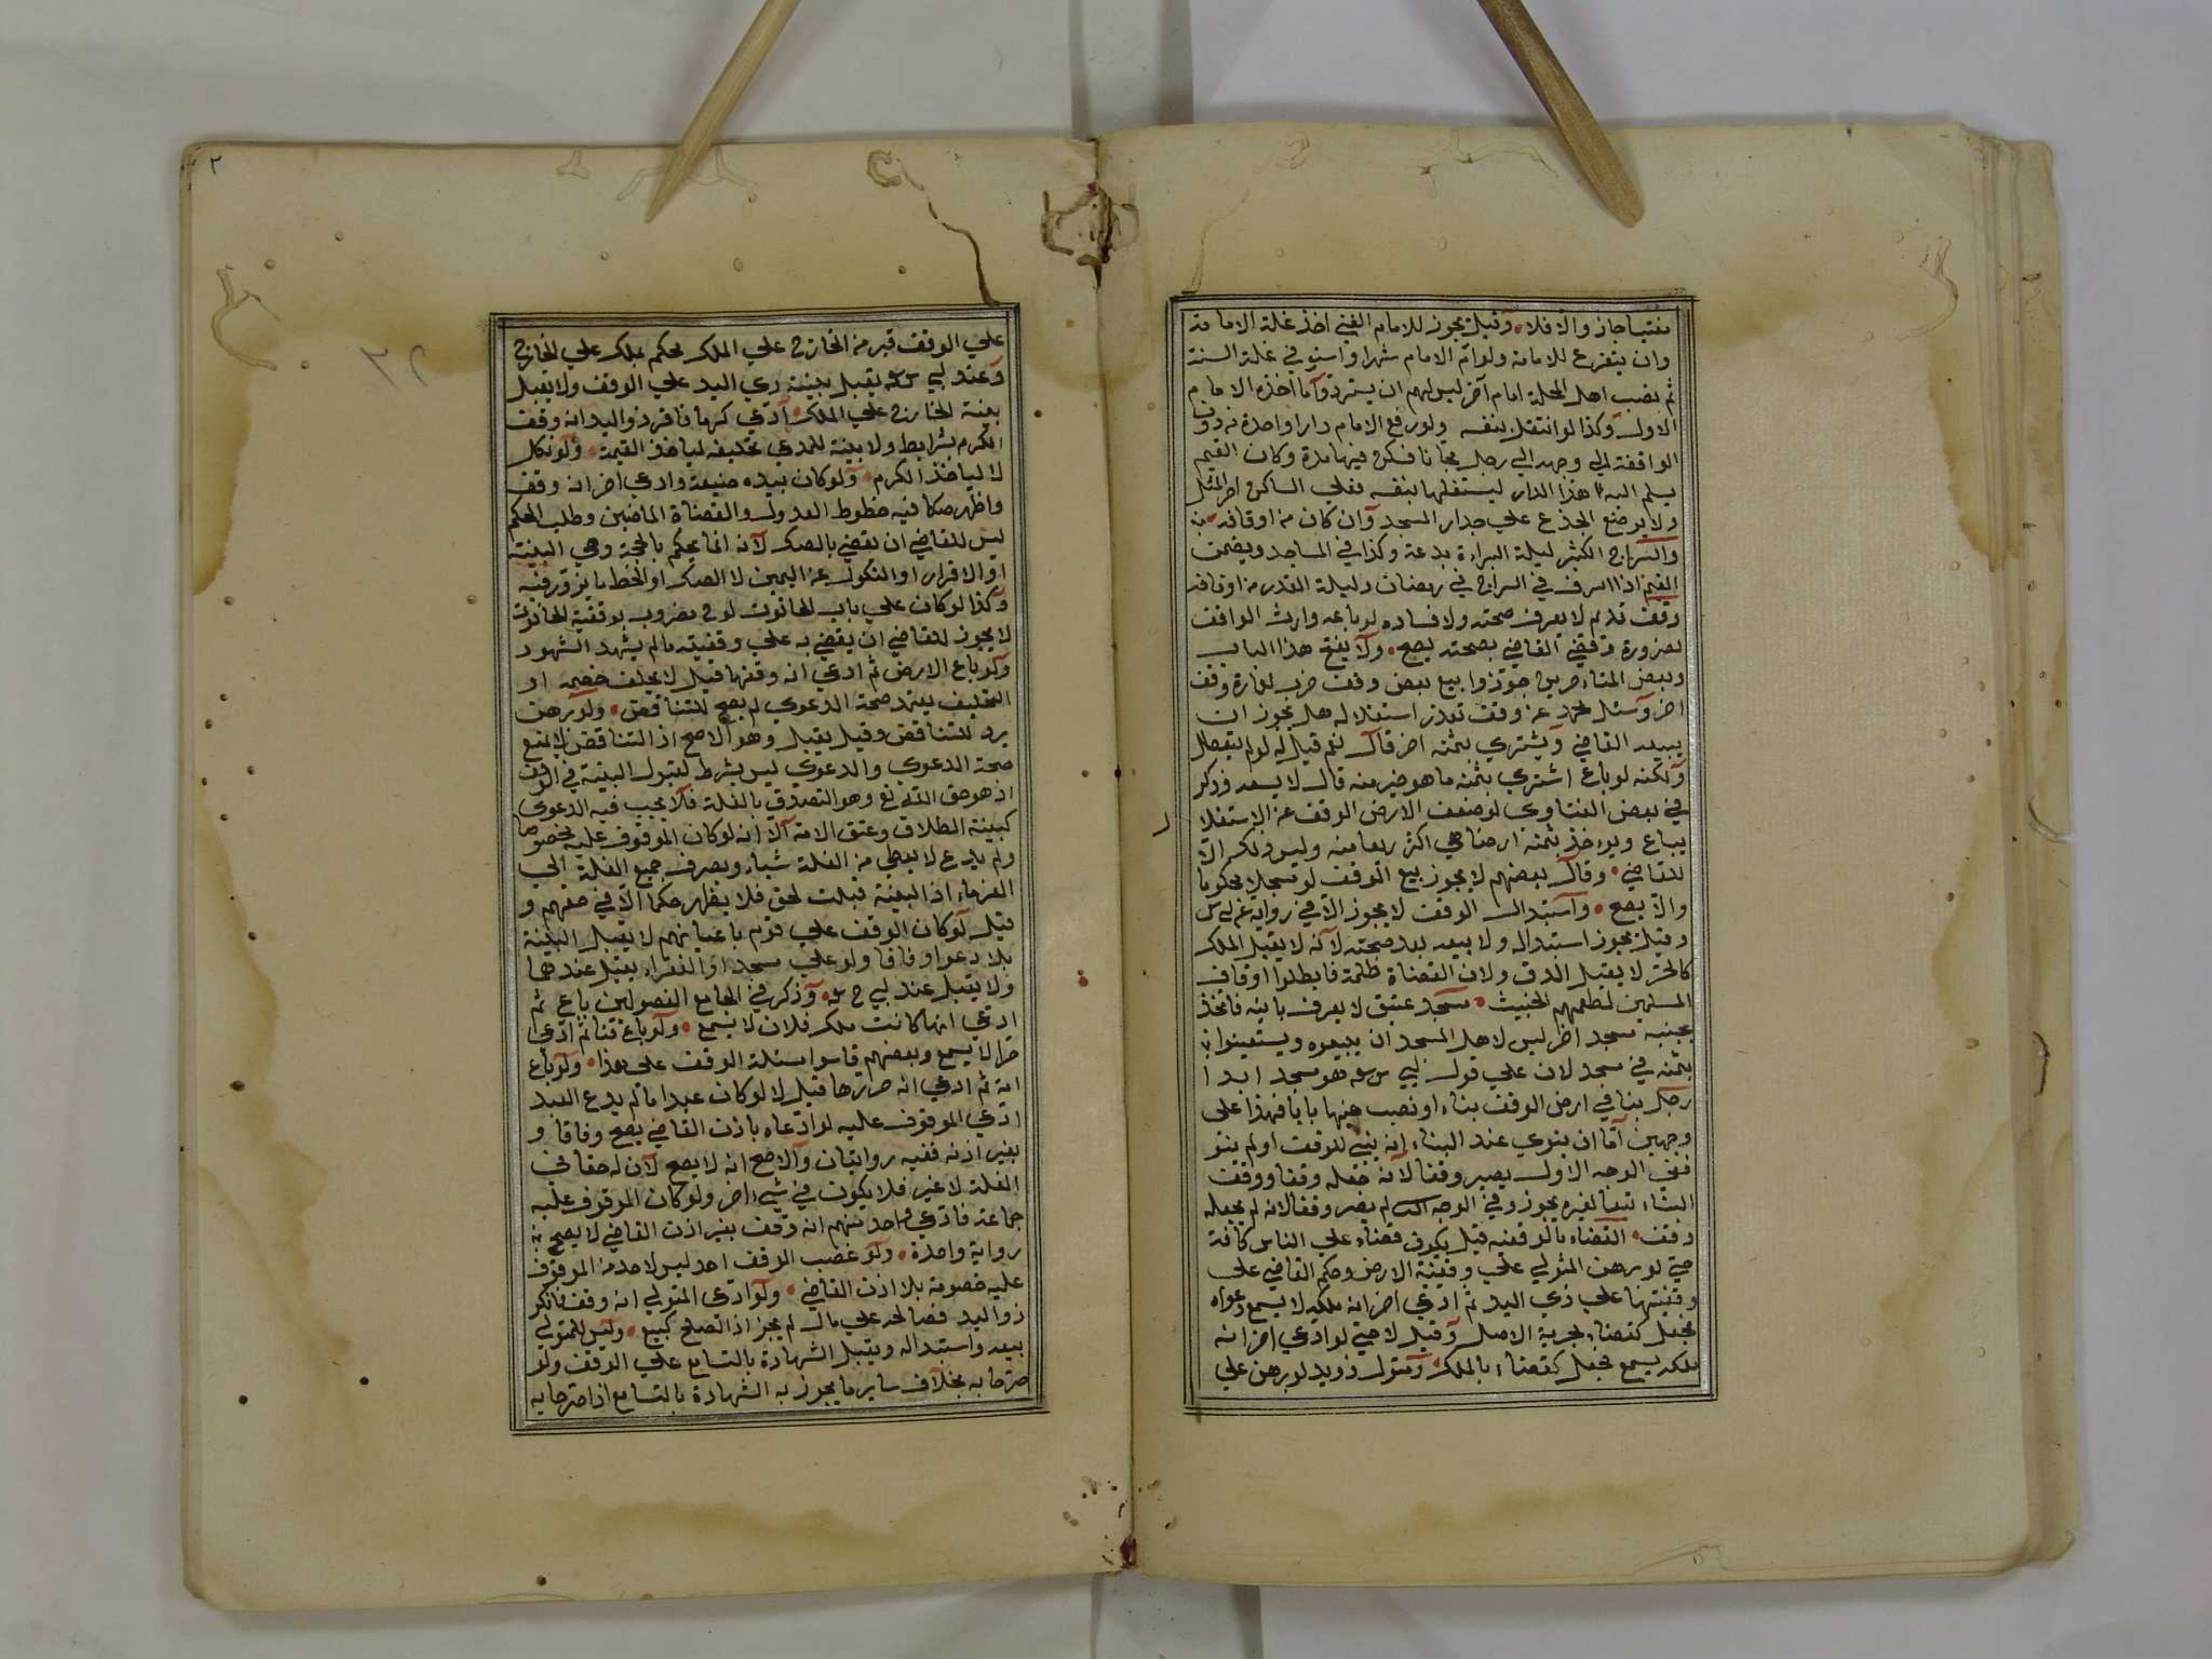 مفتيا جاز والا فلا وقيل يجوز للامام الغني اخذ غلة الامامة
وان يتفرغ للامامة ولو ام الامام شهرا واستوفي غلة السنة
ثم نصب اهل المحلة امام آخر ليس لهم ان يستردوا ما اخذه الامام
الاول وكذا لو انتقل بنفسه ولو رفع الامام دارا واحدة من دور
الواقفة الي وجهه الي رجل مجانا فسكن فيها مدة وكان القيم
يسلم اليه هذا الدار ليستغلها بنفسه فعلي الساكن اجر المثل
ولا يوضع الجذع علي جدار المسجد وان كان من اوقافه
والسراج الكثير ليلة البراءة بدعة وكذا في المساجد ويضمن
القيم اذا اسرف في السراج في رمضان وليلة القدر من اوقافه
وقف قديم لا يعرف صحته ولا فساده لو باعه وارث الواقف
لضرورة فقضي القاضي بصحته يصح ولا يفتح هذا الباب
وبعض المتاخرين جوزوا بيع بعض وقف خرب لعمارة وقف
اخر وسئل محمد عن وقف تعذر استغلاله هل يجوز ان
يبيعه القاضي ويشتري بثمنه اخر قال نعم قيل له لو لم يتعطل
ولكنه لو باع اشتري بثمنه ما هو خير منه قال لا يبيعه وذكر
في بعض الفتاوي لو ضعف الارض الوقف عن الاستغلا
يباع ويوءخذ بثمنه ارضا هي اكثر ريعا منه وليس ذلك الا
للقاضي وقال بعضهم لا يجوز بيع الوقف لو مسجلا محكوما
والا يصح واستبدال الوقف لا يجوز الا في رواية عن ابي س
وقيل يجوز استبداله ولا بيعه بعد صحته لانه لا يقبل الملك
كالحر لا يقبل الرق ولان القضاة ظلمة فابطلوا اوقاف
المسلمين لطمعهم الخبيث مسجد عتيق لا يعرف بانيه فاتخذ
بجنبه مسجد اخر ليس لاهل المسجد ان يبيعوه ويستعينوا
بثمنه في مسجد لان علي قول ابي س هو مسجد ابدا
رجل بنا في ارض الوقف بناء او نصب فيها بابا فهذا علي
وجهين اما ان ينوي عند البناء انه يبني للوقف او لم ينو
ففي الوجه الاول يصير وقفا لانه جعله وقفا ووقف
البناء تبعا لغيره يجوز وفي الوجه الثاني لم يصر وقفا لانه لم يجعله
وقف القضاء بالوقفية قيل يكون قضاء علي الناس كافة
حتي لو برهن المتولي علي وقفية الارض وحكم القاضي علي
وقفيتها علي ذي اليد ثم ادعي اخر انه ملكه لا يسمع دعواه
فجعل كقضاء لحرية الاصل وقيل لا حتي لو ادعي اخر انه
ملكه يسمع فجعل كقضاء بالملك متول ذو يد لو برهن علي
علي الوقف فبرهن الخارج علي الملك يحكم بملك علي الخارج
وعند ابي س يقبل بينة ذي اليد علي الوقف ولا يقبل
بينة الخارج علي الملك ادعي كرما فاقر ذو اليد انه وقف
الكرم بشرايط ولا بينة للمدعي تحليفه لياخذ القيمة ولو نكل
لا لياخذ الكرم ولو كان بيده ضيعة وادعي اخر انه وقف
واظهر صكا فيه خطوط العدول والقضاة الماضين وطلب الحكم
ليس للقاضي ان يقضي بالصك لانه انما يحكم بالحجة وهي البينة
او الاقرار او النكول عن اليمين لا الصك او الخط ما يزور فيه
وكذا لو كان علي باب الحانوت لوح مضروب بوقفية الحانوت
لا يجوز للقاضي ان يقضي به علي وقفيته ما لم يشهد الشهود
ولو باع الارض ثم ادعي انه وقفها قيل لا يحلف خصمه اذ
التحليف يعتمد صحة الدعوي لم يصح للتناقض ولو برهن
يرد للتناقض وقيل يقبل وهو الاصح اذ التناقض لا يمنع
صحة الدعوي والدعوي ليس بشرط لقبول البينة في الوقف
اذ هو حق الله تع وهو التصدق بالغلة فلا يجب فيه الدعوي
كبينة الطلاق وعتق الامة الا انه لو كان الموقوف عليه مخصوصا
ولم يدع لا يعطي من الغلة شياء ويصرف جميع الغلة الي
الفقراء اذ البينة قبلت لحق فلا يظهر حكما الا في حقهم و
قيل لو كان الوقف علي قوم باعيانهم لا يقبل البينة
بلا دعوا وفاقا ولو علي مسجد او الفقراء يقبل عندهما
ولا يقبل عند ابي ح وذكر في الجامع الفصولين باع ثم
ادعي انها كانت ملك فلان لا يسمع ولو باع قنا ثم ادعي
حرا لا يسمع وبعضهم قاسوا مسئلة الوقف علي هذا ولو باع
امة ثم ادعي انه حررها قيل لا لو كان عبدا ما لم يدع العبد
ادعي الموقوف عليه لو ادعاه باذن القاضي يصح وفاقا و
بغير اذنه ففيه روايتان والاصح انه لا يصح لان له حقا في
الغلة لا غير فلا يكون في شيء اخر ولو كان الموقوف عليه
جماعة فادعي واحد منهم انه وقف بغير اذن القاضي لا يصح
رواية واحدة ولو غصب الوقف احد ليس لاحد من الموقوف
عليه خصومة بلا اذن القاضي ولو ادعي المتولي انه وقف فانكر
ذو اليد فصالحه علي مال لم يجز اذ الصلح كبيع وليس للمتولي
بيعه واستبداله ويقبل الشهادة بالتسامع علي الوقف ولو
صرحا به بخلاف ساير ما يجوز به الشهادة بالتسامع اذا صرحا به
٢